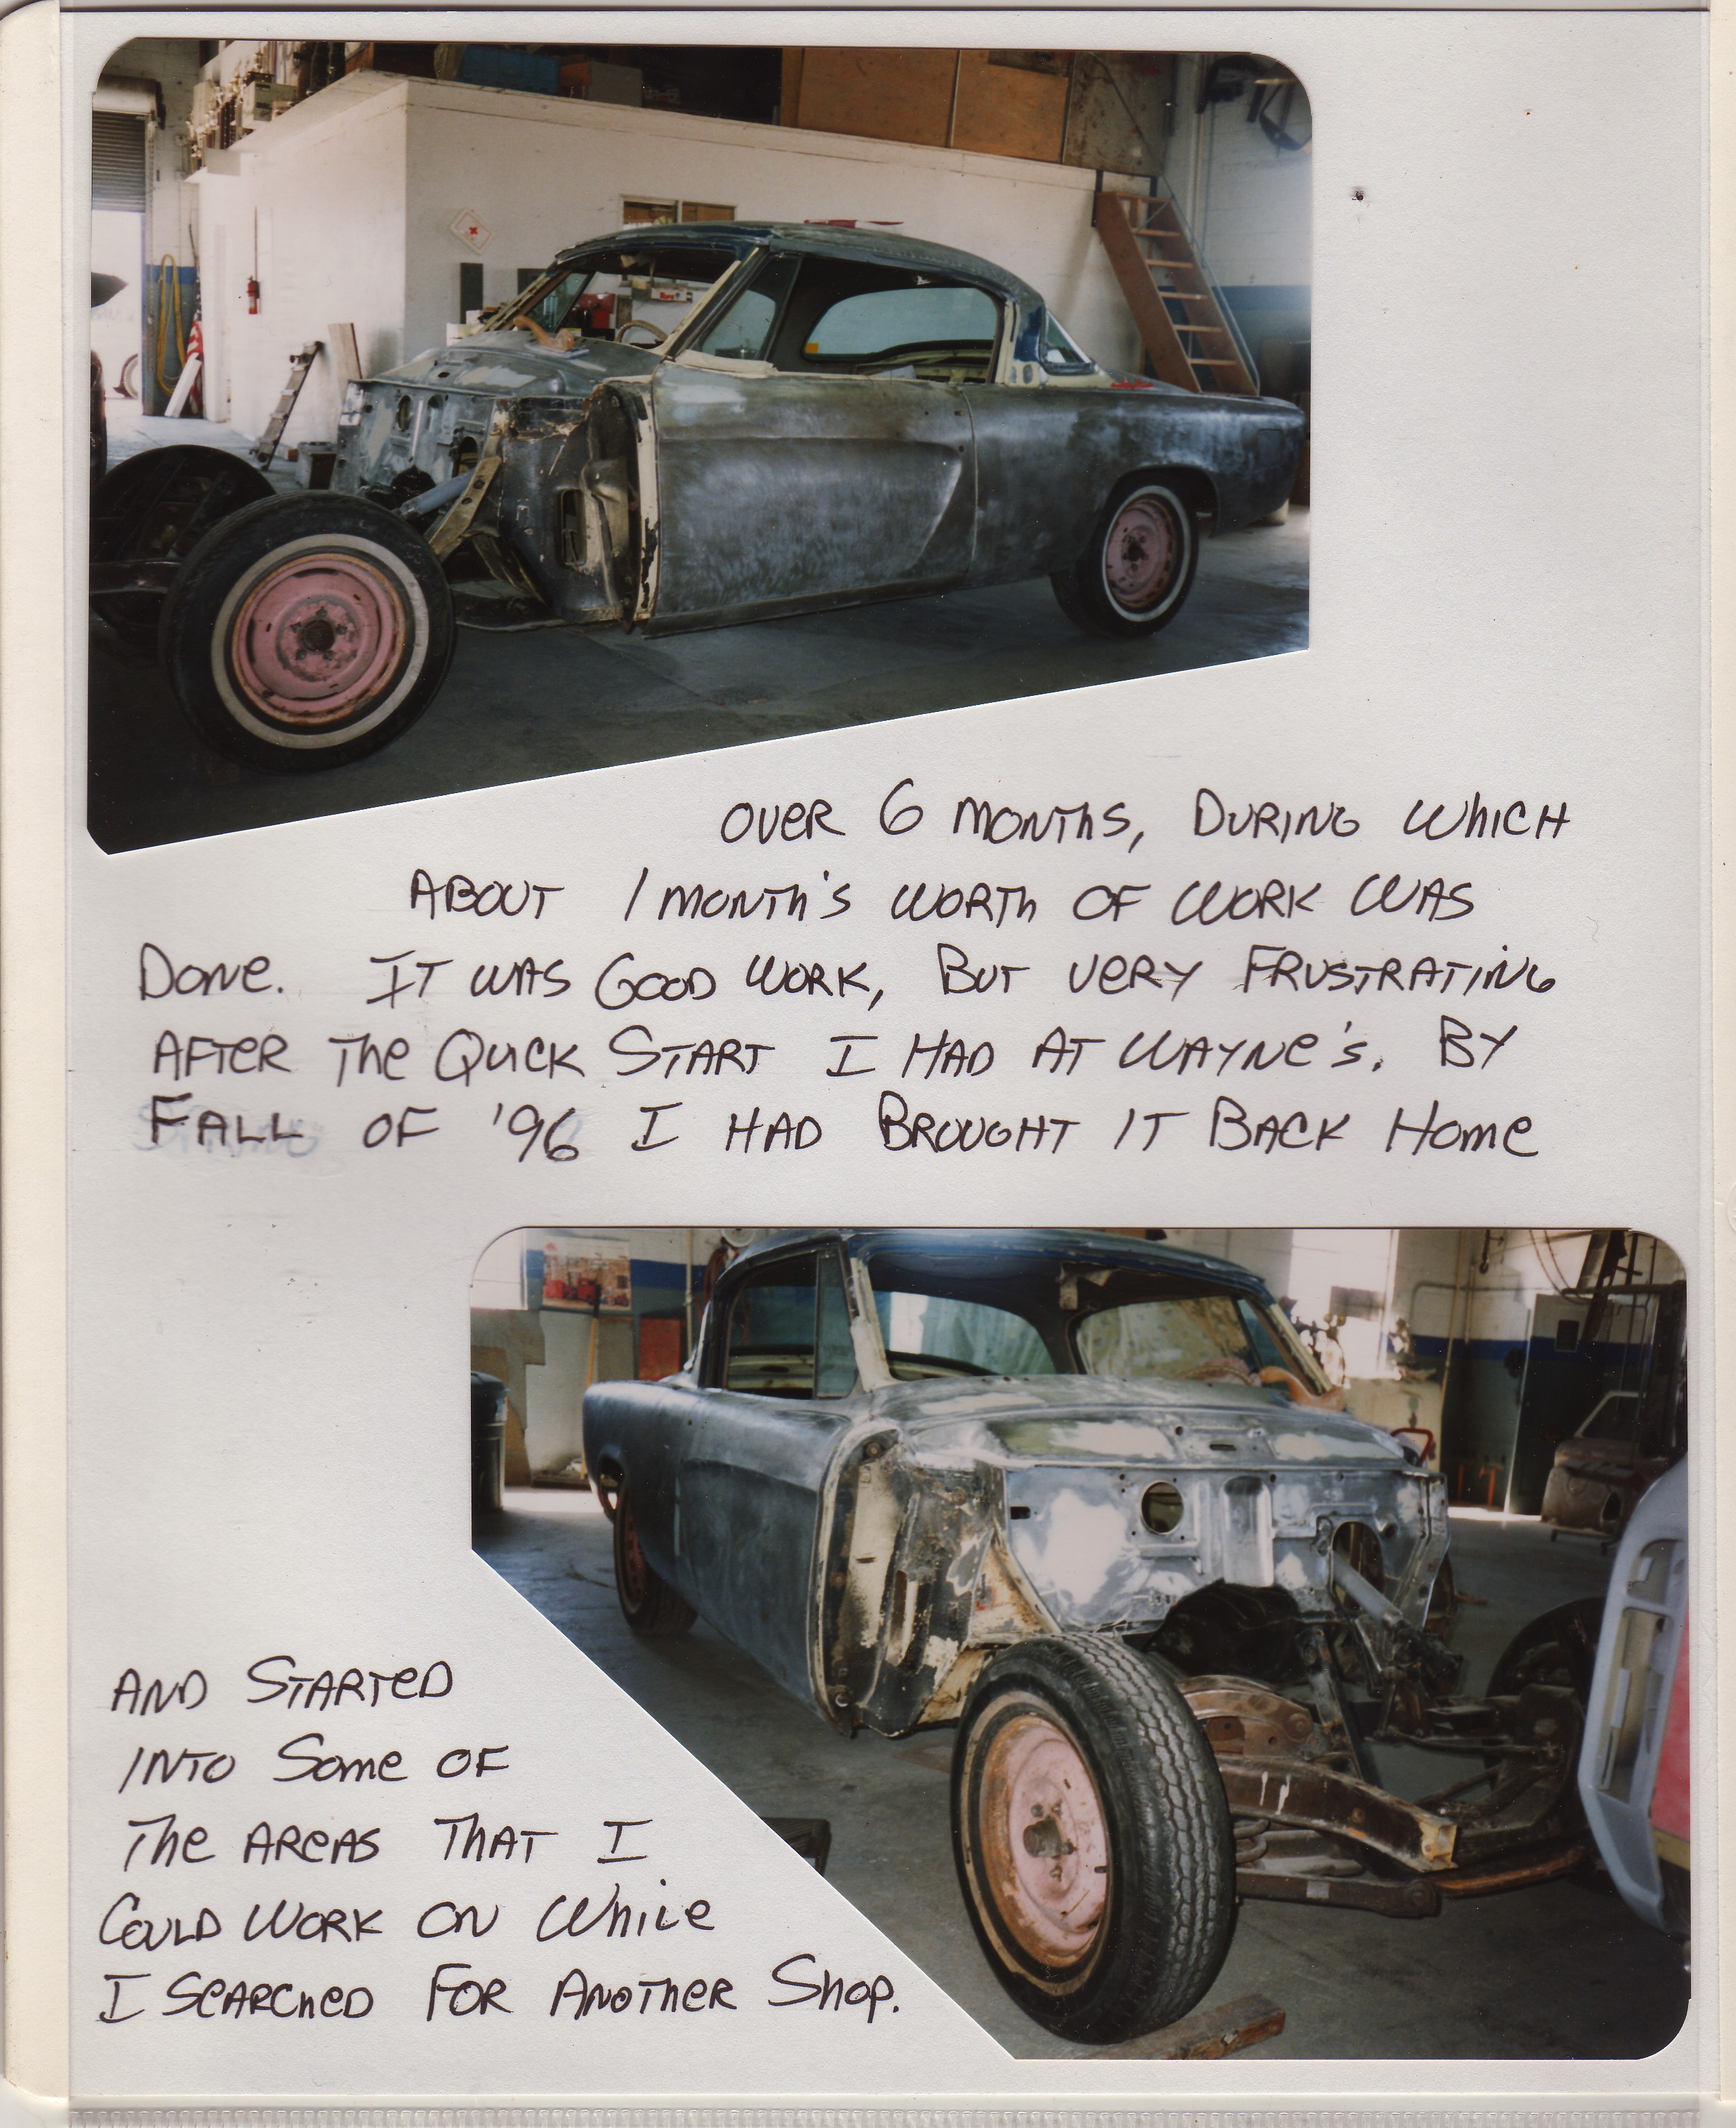 OVER 6 MONTHS, DURING WHICH
ABOUT 1 MONTH'S WORTH OF WORK WAS
DONE. IT WAS GOOD WORK, BUT VERY FRUSTRATING
AFTER THE QUICK START I HAD AT WAYNE'S. BY
FALL OF '96 I HAD BROUGHT IT BACK HOME
AND STARTED
INTO SOME OF
THE AREAS THAT I
COULD WORK ON WHILE
I SEARCHED FOR ANOTHER SHOP.